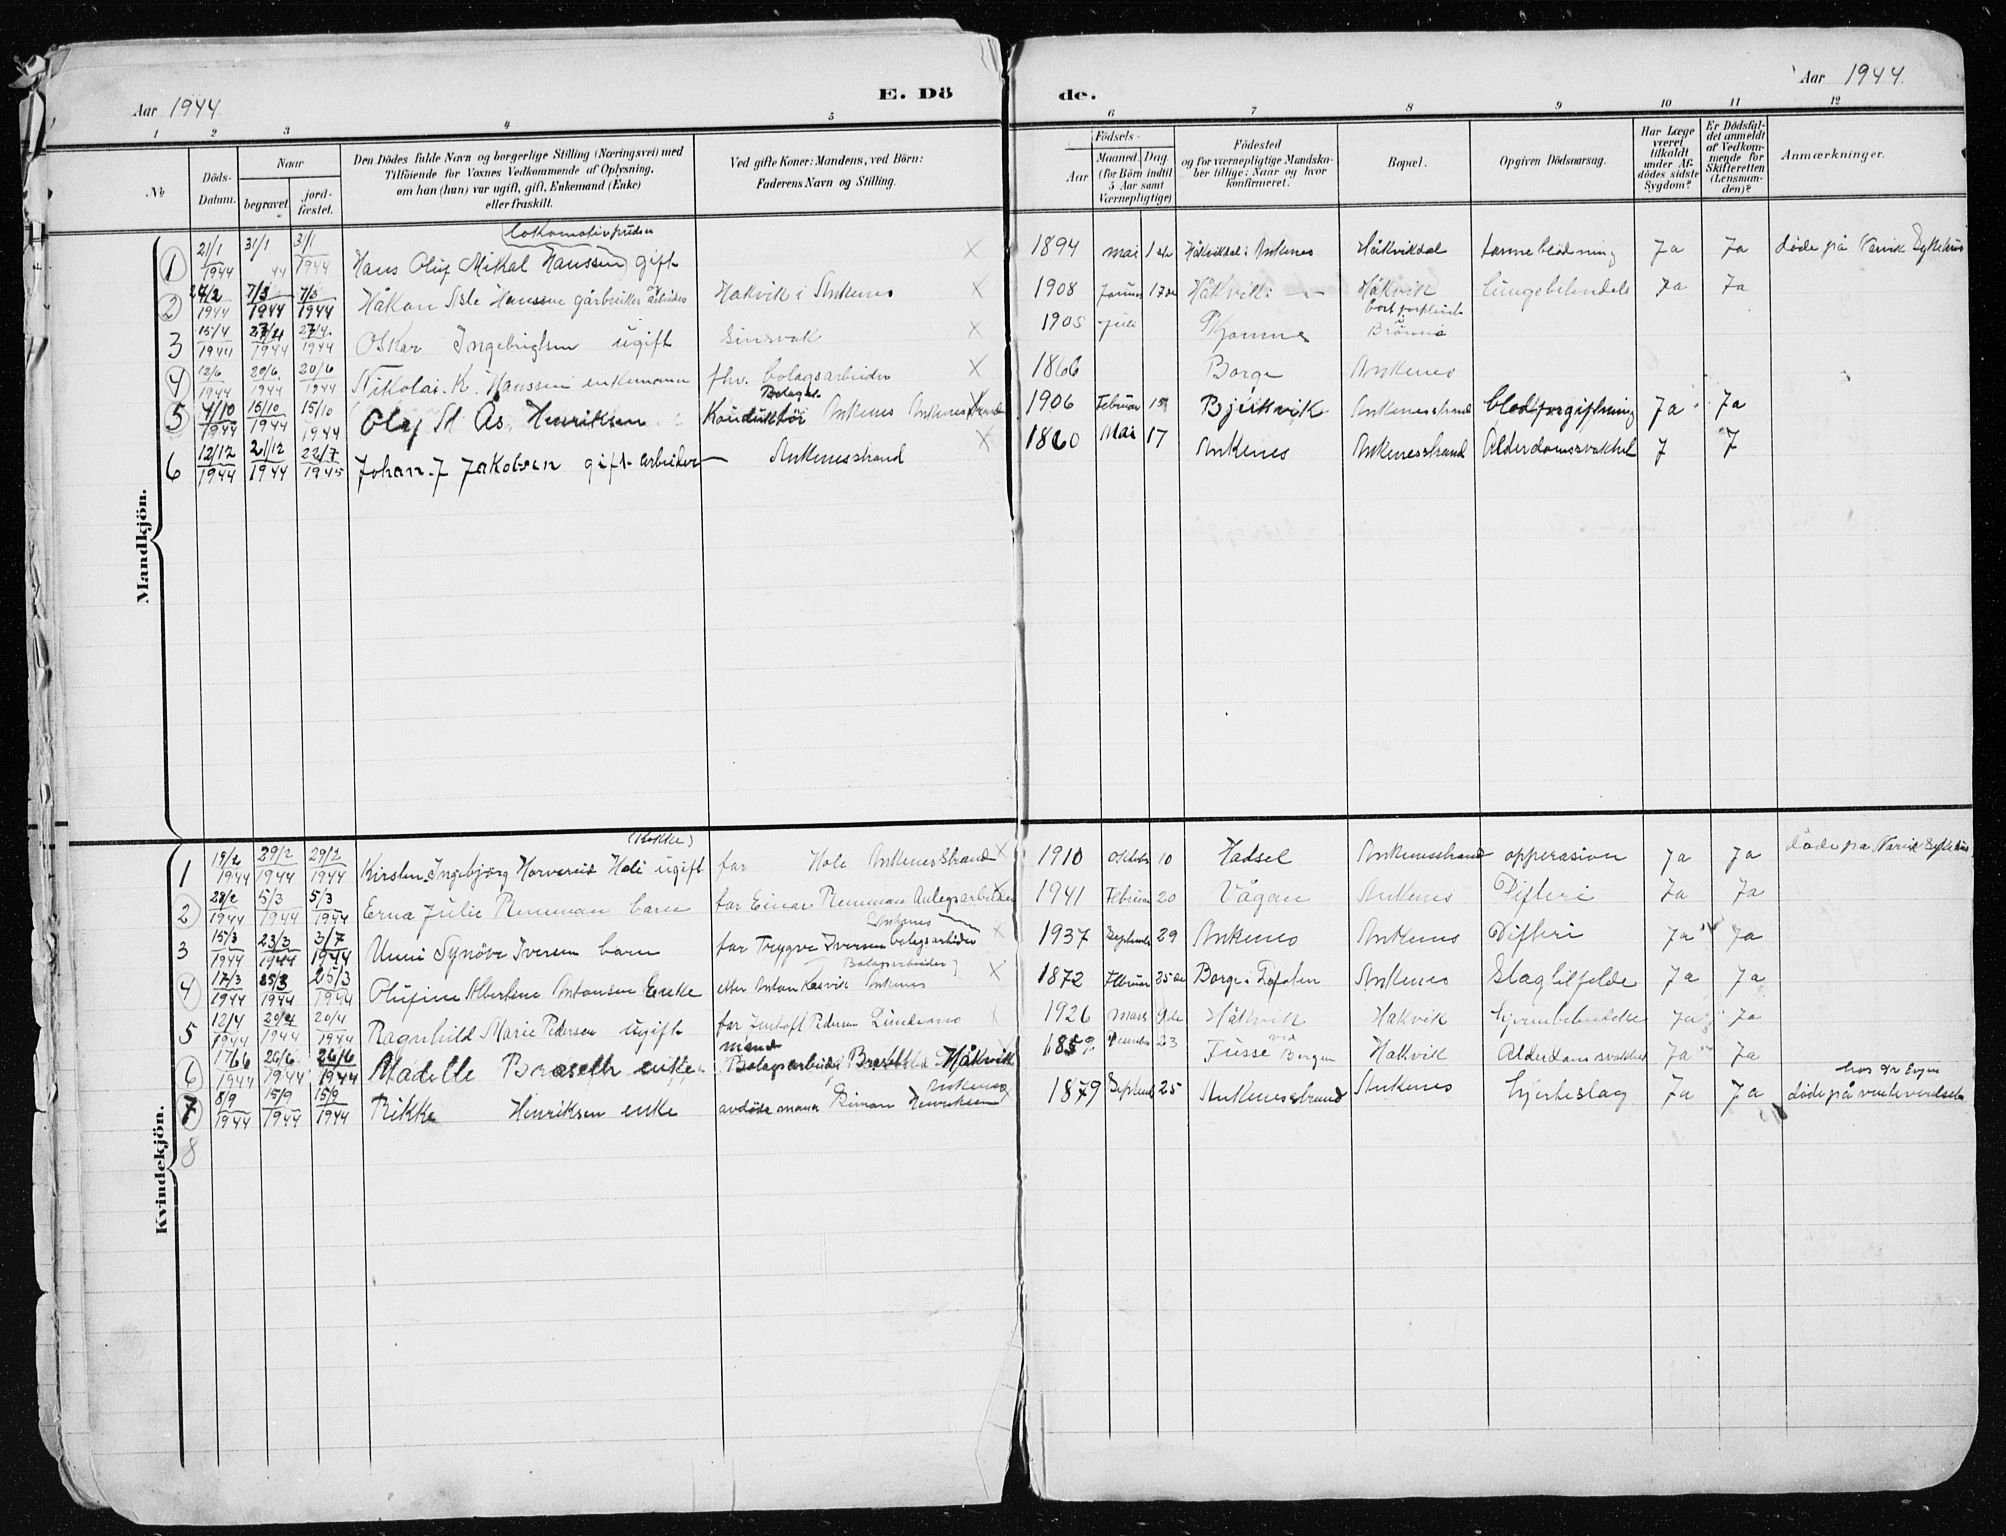 Aar 1944
E. Dö
de.
Aar 1944.
1 2 3 4 5 6 7 8 9 10 11 12
No
Döds-Datum.
Naar
begravet.
jord-fæstet.
Den Dödes fulde Navn og borgerlige Stilling (Næringsvei) med
Tilföiende for Voxnes Vedkommende af Oplysning,
om han (hun) var ugift, gift, Enkemand (Enke)
eller fraskilt.
Ved gifte Koner: Mandens, ved Börn:
Faderens Navn og Stilling.
Födsels-
Aar
Maaned. Dag
(for Börn indtil
5 Aar samt
Værnepligtige)
Födested
og for værnepligtige Mandska-
ber tillige: Naar og hvor
konfirmeret.
Bopæl.
Opgiven Dödsaarsag.
Har Læge
været
tilkaldt
under Af-
dödes sidste
Sygdom?
Er Dödsfal-
det anmeldt
af Vedkom-
mende for
Skifteretten
(Lensman-
den)?
Anmærkninger.
Mandkjön.
1 21/1 1944 31/1 44 31/1 1944 Hans Oluf Mikal Hanssen gift X 1894 mai 1ste Håkvikdal i Ankenes Håkvikdal tarmeblødning Ja Ja døde på Narvik Sykehus
2 24/2 1944 7/3 1944 7/3 1944 Håkon Hanssen gårbruker og arbeider Håkvik i Ankenes X 1908 Januar 17de Håkvik i Håkvik lungebetendelse Ja Ja
3 15/4 1944 27/4 1944 27/4 1944 Oskar Ingebrigtsen ugift X 1905 Juli
4 12/6 1944 20/6 1944 20/6 1944 Nikolai K. Hanssen enkemann fhv. bolagsarbeider X 1866 Borge Ankenes
5 4/10 1944 16/10 1944 15/10 1944 Henriksen Konduktør Ankenes Ankenesstrand 1906 Februar Bjerkvik Ankenesstrand blodforgiftning Ja Ja
6 12/12 1944 21/12 1944 22/7 1945 Johan J Jakobsen gift arbeider Ankenesstrand X 1860 Mai 17 Ankenes Ankenesstrand Alderdomssvakhet J J
Kvindekjön.
(Kokke)
1 19/2 1944 29/2 1944 29/2 1944 Kirsten Ingebjørg Hole ugift far Hole Ankenesstrand X 1910 Oktober 10 Hadsel Ankenesstrand opperasion Ja Ja døde på Narvik Sykehus
2 28/2 1944 5/3 1944 5/3 1944 Erna Julie Remman barn far Einar Remman Anlegsarbeider X 1941 Februar 20 Vågan Ankenes Difteri Ja Ja
3 15/3 1944 23/3 1944 3/7 1944 Unni Synøve Iversen barn far Trygve Iversen bolagsarbeider Ankenes X 1937 September 29 Ankenes Ankenes Difteri Ja Ja
4 17/3 1944 25/3 1944 25/3 1944 Olufine Albertine Antonsen Enke etter Anton Bolagsarbeider Ankenes X 1872 Februar 25de Borge i Lofoten Ankenes Slagtilfelde Ja Ja
5 12/4 1944 20/4 1944 20/4 1944 Ragnhild Marie Pedersen ugift far Pedersen X 1926 Mars 9de Håkvik Håkvik hjernebetendelse Ja Ja
6 17/6 1944 26/6 1944 26/6 1944 Braseth enke mand Bolagsarbeider Braseth Håkvik 23 Fusse ved Bergen Håkvik Alderdomssvakhet Ja Ja
7 8/9 1944 15/9 1944 15/9 1944 Rikke Henriksen enke avdøde mann Henriksen Ankenes X 1879 September 25 Ankenesstrand Ankenes hjerteslag Ja Ja døde på
8